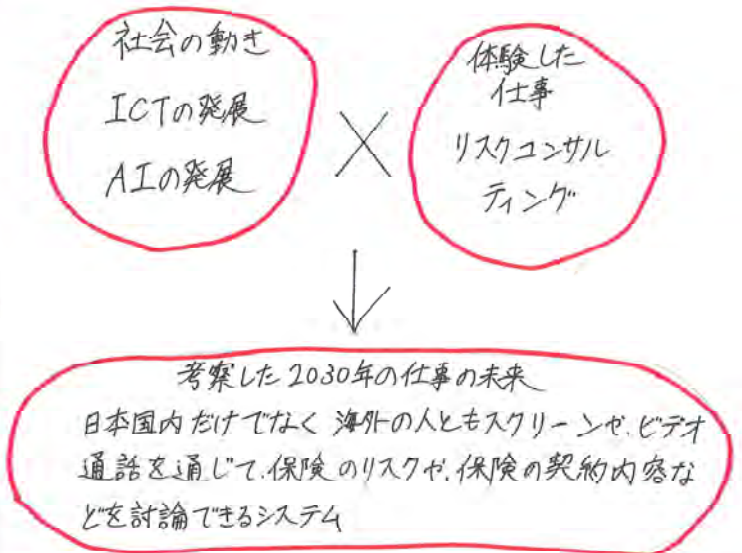 社会の動き
ICTの発展
AIの発展
×
体験した
仕事
リスクコンサル
ティング
考察した2030年の仕事の未来
日本国内だけでなく海外の人ともスクリーンや、ビデオ
通話を通じて、保険のリスクや、保険の契約内容な
どを討論できるシステム